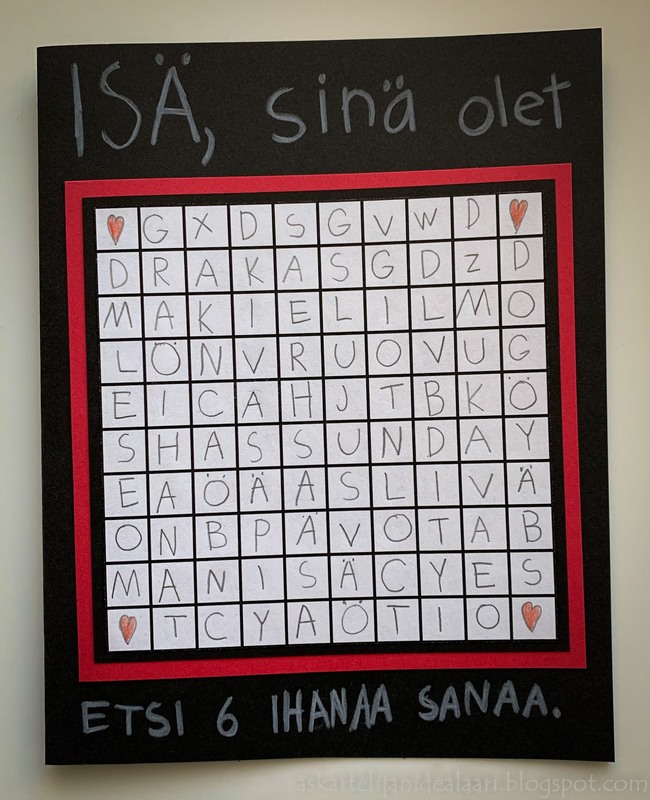 ISÄ, sinä olet
G X D S G V W D
D R A K A S G D Z D
M A K I E L I L M O
L Ö N V R U O V U G
E I C A H J T B K Ö
S H A S S U N D A Y
E A Ö Ä A S L I V Ä
O N B P Ä V O T A B
M A N I S Ä C Y E S
T C Y A Ö T I O
ETSI 6 IHANAA SANAA.
askartelijanidealaari.blogspot.com